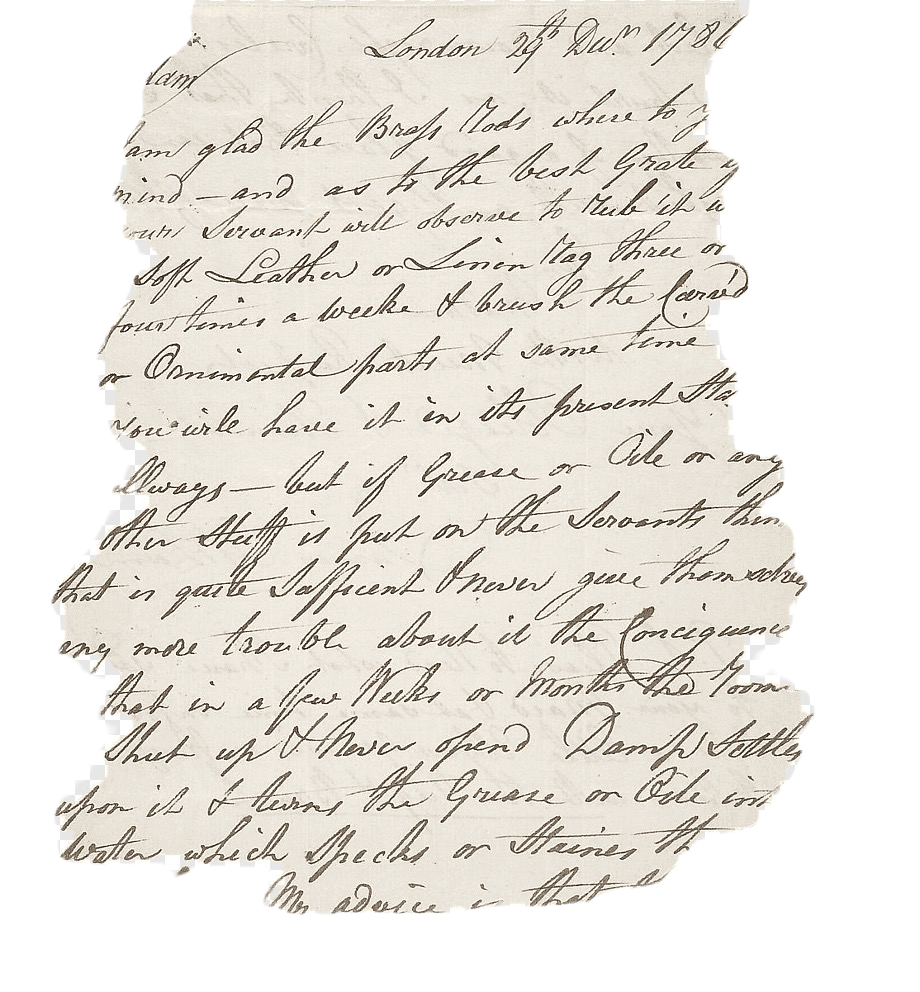 London 29th Decr. 178
dam
am glad the Brass Rods where to y
mind - and as to the best Grate
your Servant will observe to Rub it
soft Leather or Linin Rag three or
four times a weeke & brush the Carved
or Ornimental parts at same time
You will have it in its present Sta
Allways - but if Grease or Oile or any
other Stuff is put on the Servants thin
that is quite Safficent & never give themselves
any more trouble about it the Conciquence
that in a few Weeks or Months the Room
Shut up & Never opend Damp Settles
upon it & turns the Grease or Oile int
Water which Specks or Staines th
My advice is that